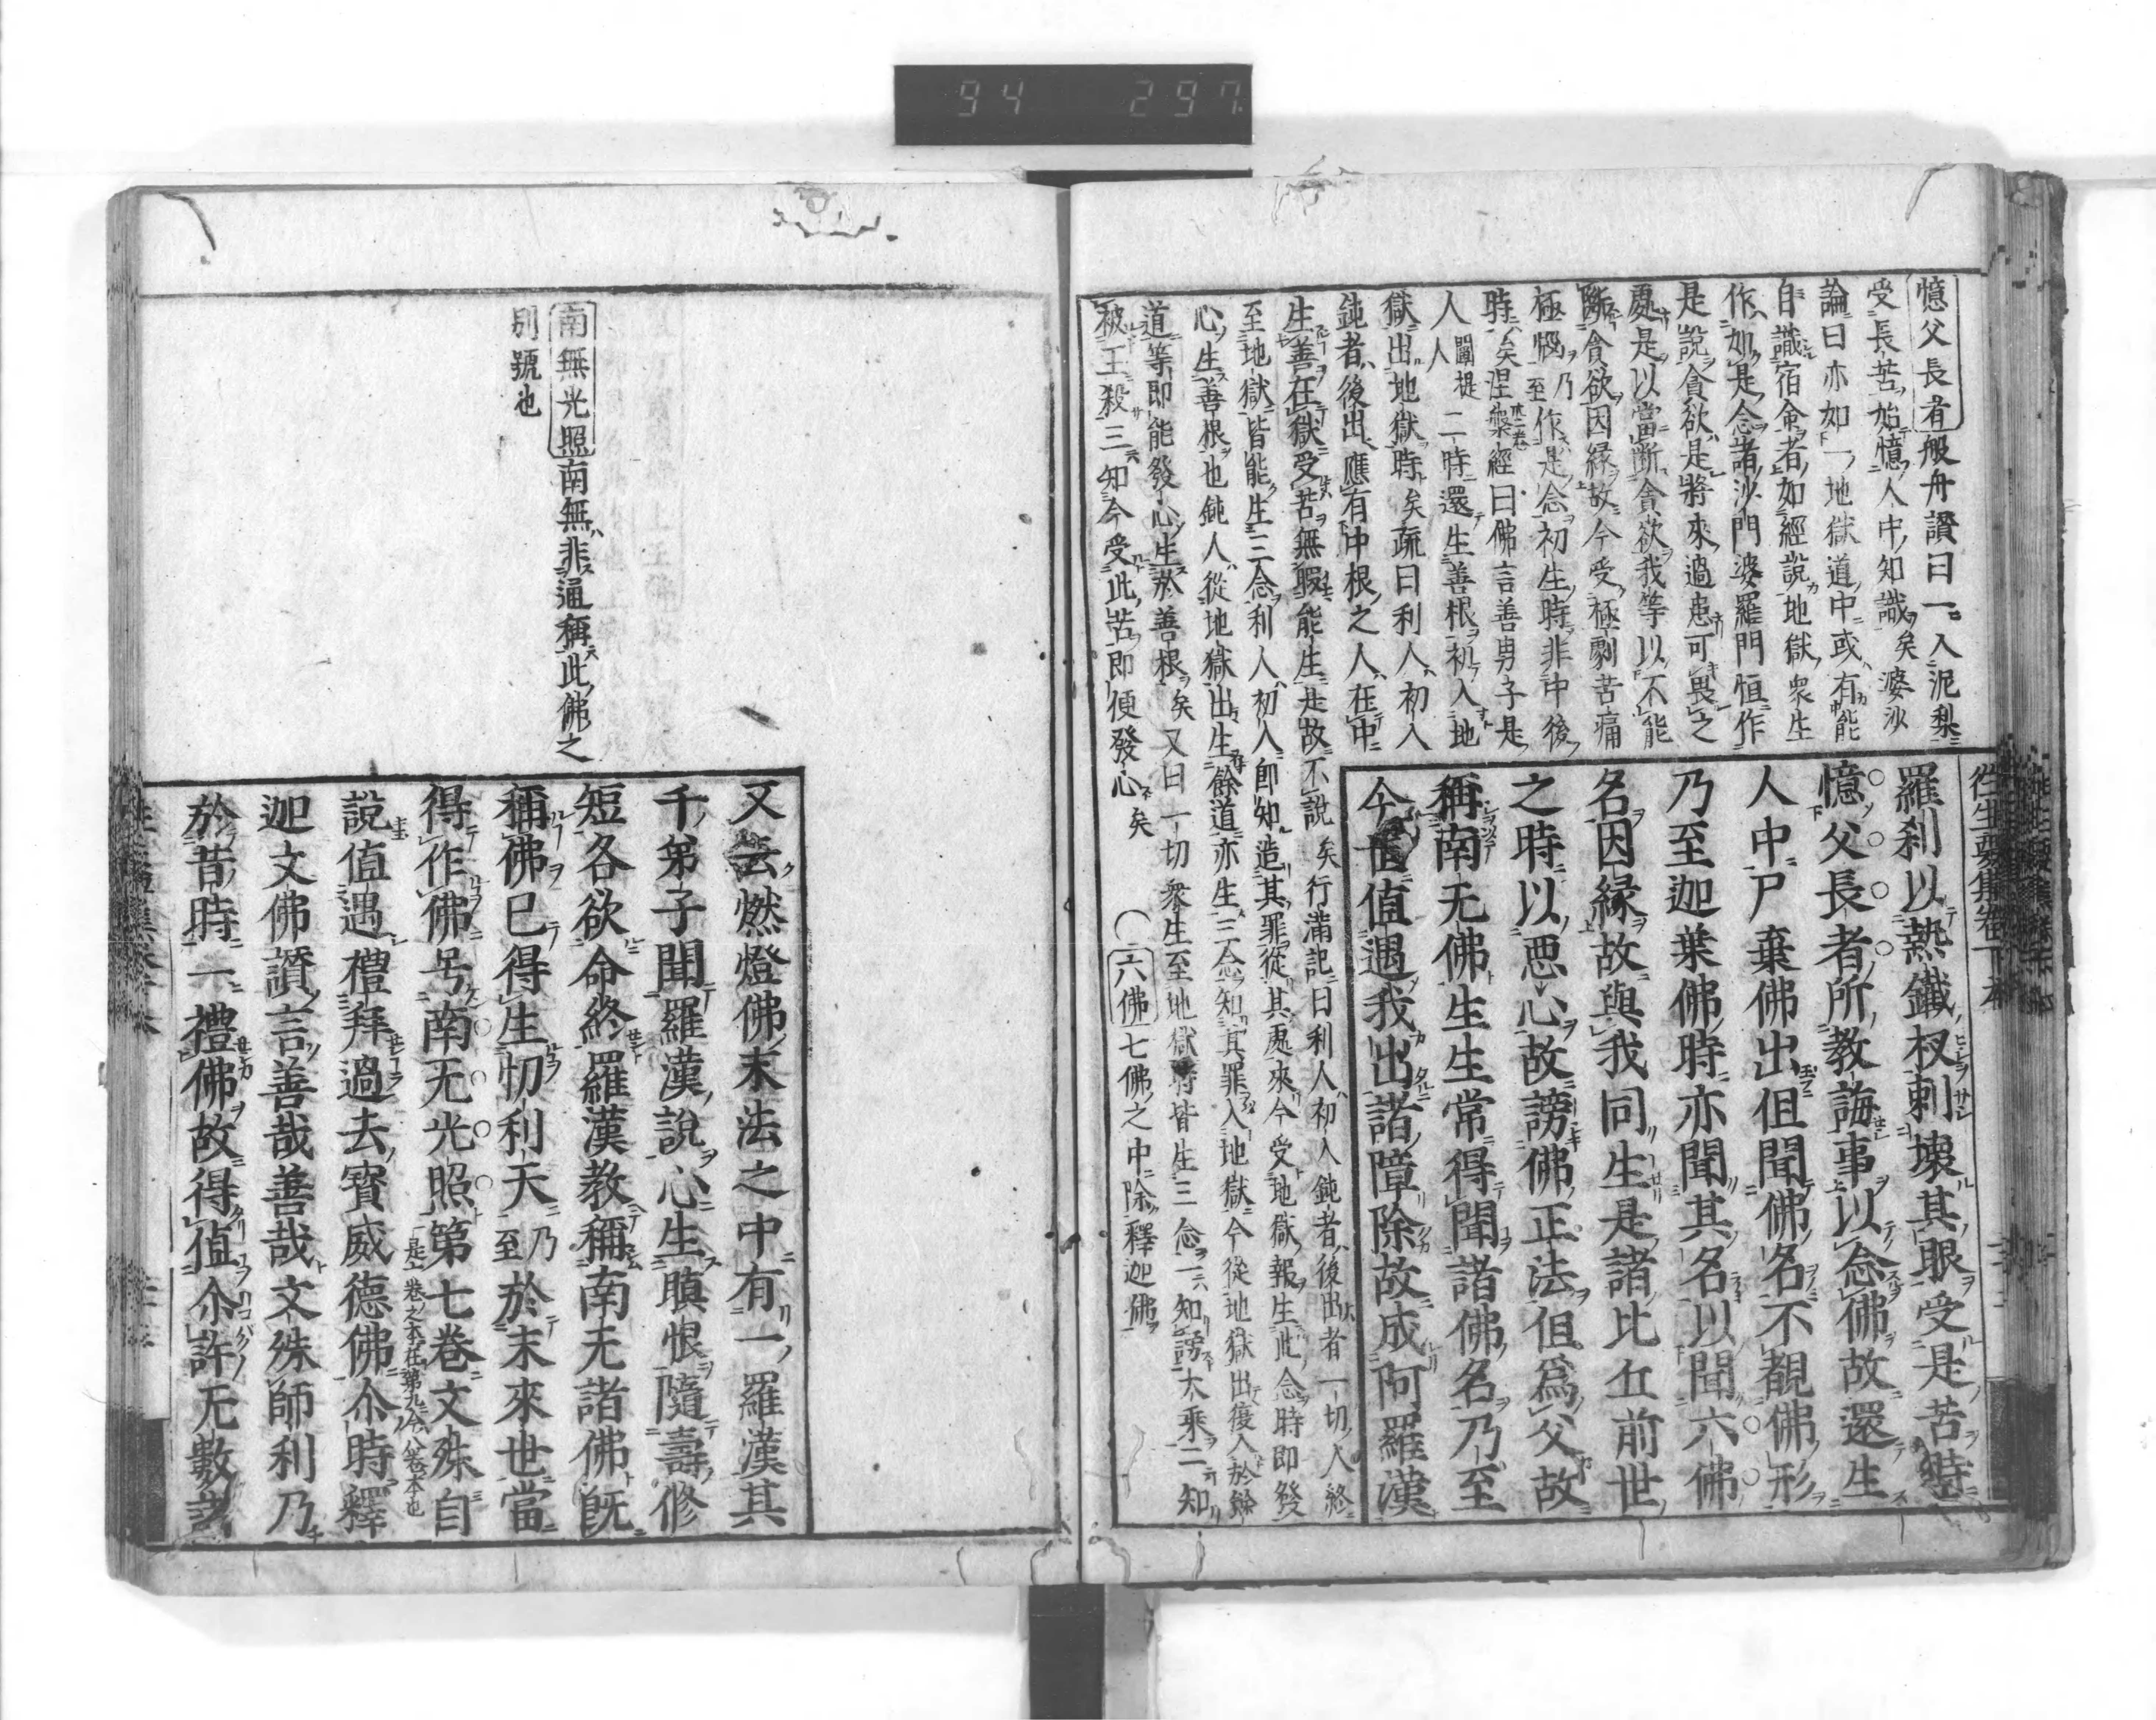 94 297
往生要集卷下本
憶父長者般舟讚曰一入泥梨
受長苦始憶人中知識矣婆沙
論曰亦如一地獄道中或有能
自識宿命者如經說地獄衆生
作如是念諸沙門婆羅門恒作
是說貪欲是將來過患可畏之
處是以當斷貪欲我等以不能
斷貪欲因縁故今受極劇苦痛
極惱乃至作是念初生時非中後
時矣涅槃經曰佛言善男子是
人闡提人二時還生善根初入地
獄出地獄時矣疏曰利人初入
鈍者後出應有中根之人在中
生善在獄受苦無暇能生是故不說矣行滿記曰利人初入鈍者後出者一切人終
至地獄皆能生三念利人初入即知造其罪從其處來今受地獄報生此念時即發
心生善根也鈍人從地獄出生餘道亦生三念知其罪入地獄今從地獄出復入於餘
道等即能發心生於善根矣又曰一切衆生至地獄時皆生三念一知謗大乘二知
被王殺三知今受此苦即便發心矣 ○六佛七佛之中除釋迦佛
羅刹以熱鐵杈刺壞其眼受是苦時
憶父長者所教誨事以念佛故還生
人中尸棄佛出但聞佛名不覩佛形
乃至迦葉佛時亦聞其名以聞六佛
名因縁故與我同生是諸比丘前世
之時以惡心故謗佛正法但爲父故
稱南无佛生生常得聞諸佛名乃至
今世值遇我出諸障除故成阿羅漢
南無光照南無非通稱此佛之
別號也
又云燃燈佛末法之中有一羅漢其
千弟子聞羅漢說心生瞋恨隨壽修
短各欲命終羅漢教稱南无諸佛既
稱佛已得生忉利天乃至於末來世當
得作佛号南无光照第七卷文殊自
說值遇禮拜過去寶威德佛尒時釋
迦文佛讚言善哉善哉文殊師利乃
於昔時一禮佛故得值尒許无數諸